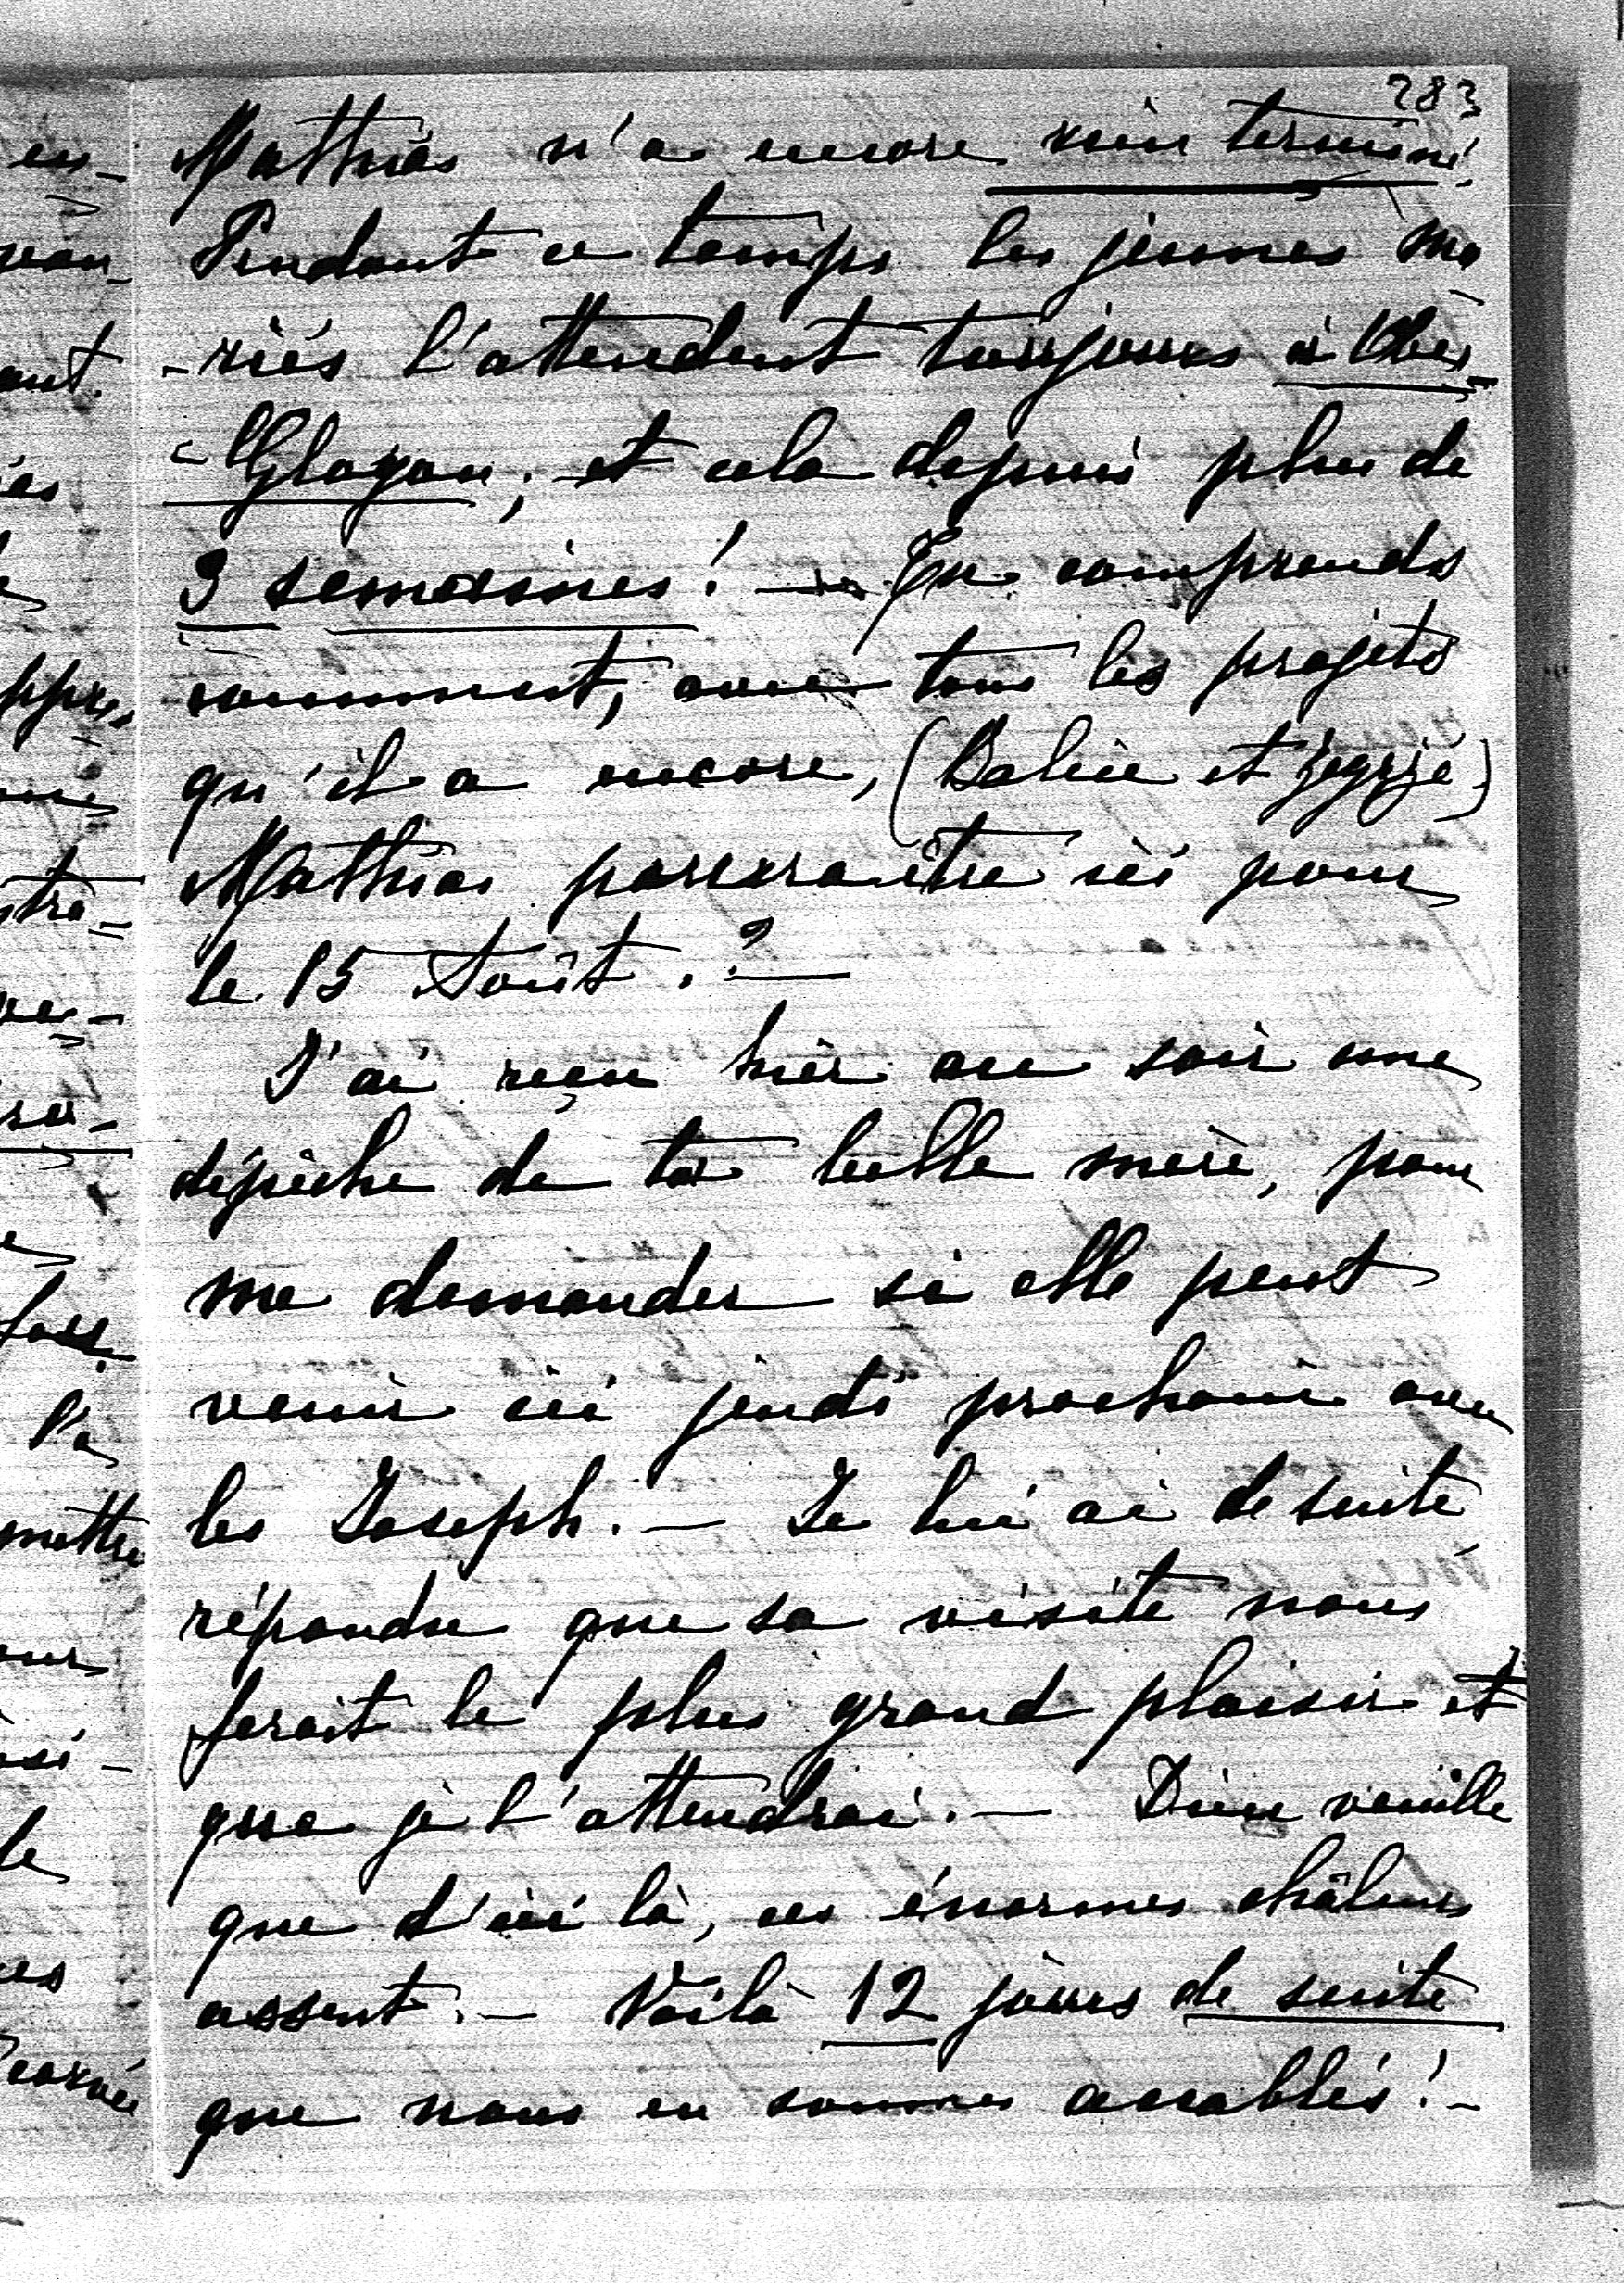 283
Mathias n'a encore rien terminé!
Pendant ce temps les jeunes ma
-riés l'attendent toujours à Ober
-Glogau, et cela depuis plus de
3 semaines! — Tu comprends
comment, avec tous les projets
qu'il a encore, (Balice et Zegrze)
Mathias pourra être ici pour
le 15 Août. ? —
J'ai reçu hièr au soir une
dépèche de ta belle mère, pour
me demander si elle peut
venir ici jeudi prochain avec
les Joseph. — Je lui ai de suite
répondu que sa visite nous
ferait le plus grand plaisir et
que je l'attendrai. — Dieu veuille
que d'ici là, ces énormes châleurs
cessent. — Voilà 12 jours de suite
que nous en sommes accablés! —